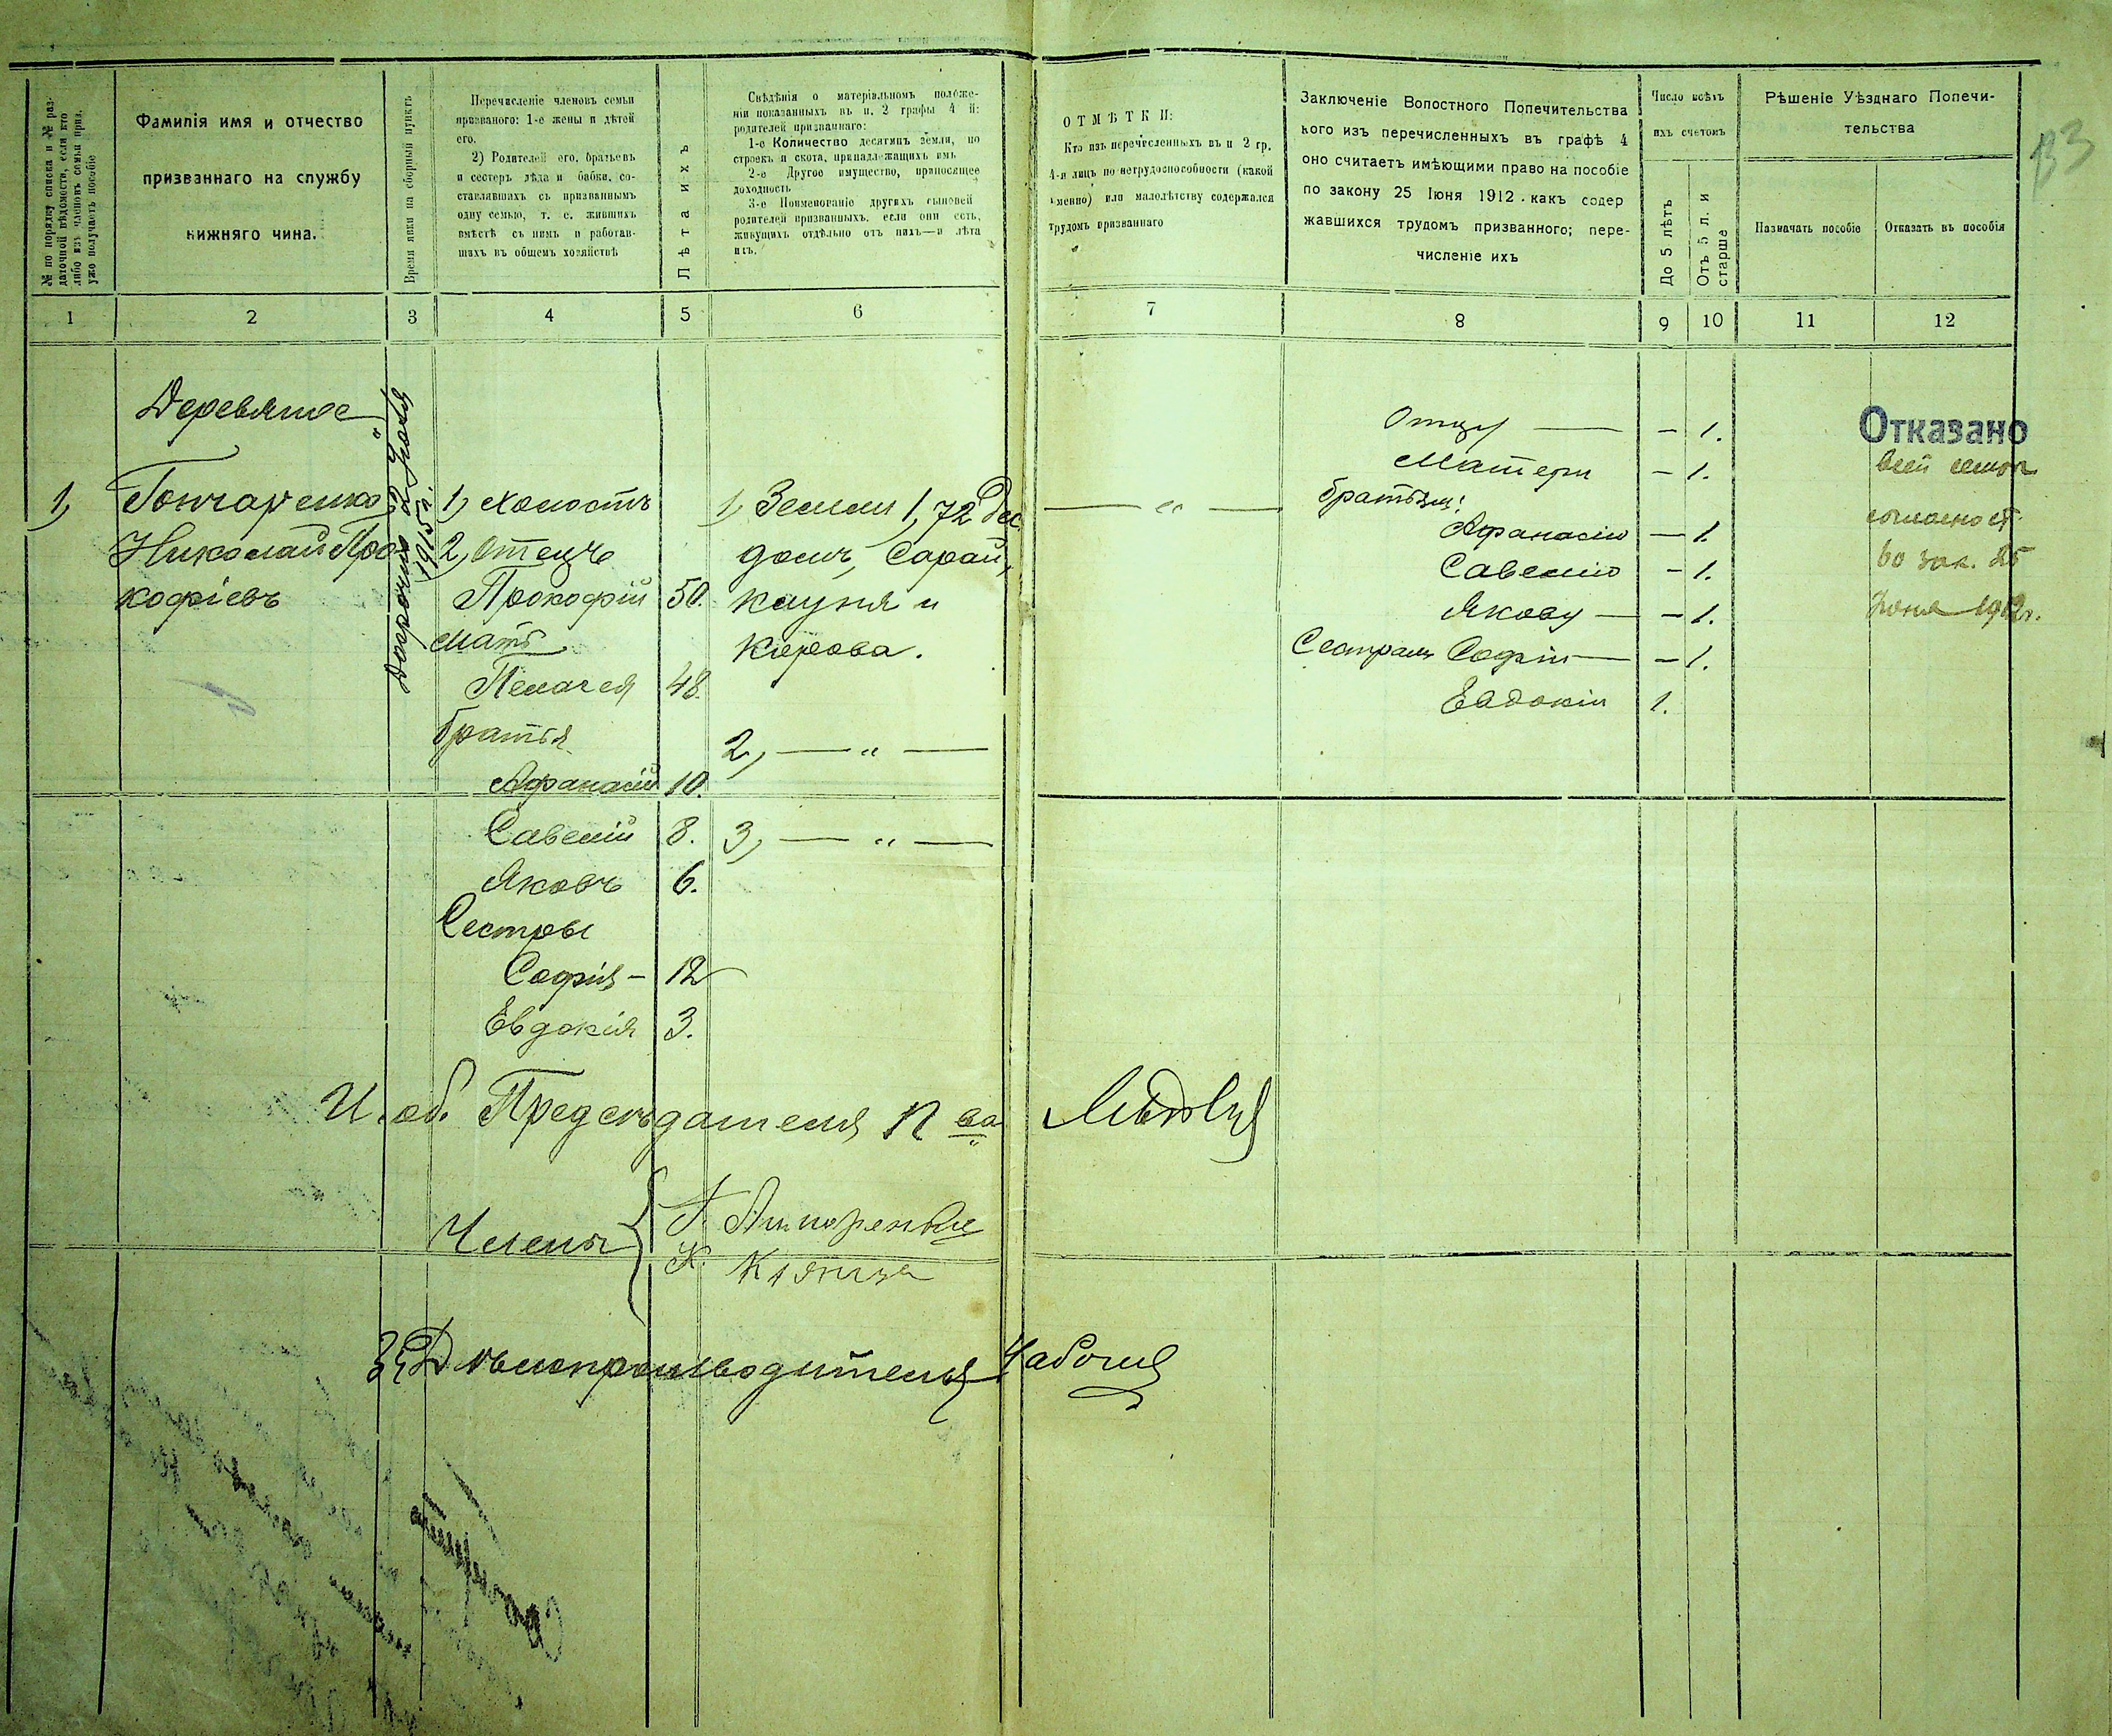 № по порядку списка и № раз-
даточной вѣдомости, если кто
либо изъ членовъ семьи приз.
уже получаетъ пособіе
Фамилія имя и отчество
призваннаго на службу
нижняго чина.
Время явки на сборный пунктъ
Перечисленіе членовъ семьи
призваного: 1-е жены и дѣтей
его.
2) Родителей его, братьевъ
и сестеръ дѣда и бабки, со-
ставлявшихъ съ призваннымъ
одну семью, т. е. жившихъ
вмѣстѣ съ нимъ и работав-
шихъ въ общемъ хозяйствѣ
Лѣта ихъ
Свѣдѣнія о матеріальномъ положе-
ніи показанныхъ въ п. 2 графы 4 й:
родителей призваннаго:
1-е Количество десятинъ земли, по
строекъ и скота, принадлежащихъ имъ
2-е Другое имущество, приносящее
доходность
3-е Поименованіе другихъ сыновей
родителей призванныхъ. если они есть,
живущихъ отдѣльно отъ нихъ—и лѣта
ихъ.
ОТМѢТКИ:
Кто изъ перечисленныхъ въ п 2 гр.
4-й лицъ по нетрудоспособности (какой
именно) или малолѣтству содержался
трудомъ призваннаго
Заключеніе Вопостного Попечительства
кого изъ перечисленныхъ въ графѣ 4
оно считаетъ имѣющими право на пособіе
по закону 25 Іюня 1912 . какъ содер
жавшихся трудомъ призванного; пере-
численіе ихъ
Число всѣхъ
ихъ счетомъ
До 5 лѣтъ
Отъ 5 л. и
старше
Рѣшеніе Уѣзднаго Попечи-
тельства
Назначать пособіе
Отказать въ пособія
33
1 2 3 4 5 6 7 8 9 10 11 12
Деревяное
1, Гончаренко
Николай Про
кофіевъ
1915 г.
1, холостъ
2, Отецъ
Прокофій 50.
мать
Пелагея 48.
братья
Афанасій 10.
Савелій 8.
Яковъ 6.
Сестры
Софія - 12
Евдокія 3.
1, Земли 1,72 дес
домъ, Сарай,
клуня и
корова.
2, — „ —
3, — „ —
— „ —
Отцу — - 1.
Матери - 1.
братьям:
Афанасію - 1.
Савелію - 1.
Якову — - 1.
Сестрамъ Софіи — - 1.
Евдокіи 1.
Отказано
всей семьѣ
согласно ст.
во зак. 25
Іюня 1912 г.
И. об. Предсѣдателя П ва
Члены
К.
За Дѣлопроизводителя